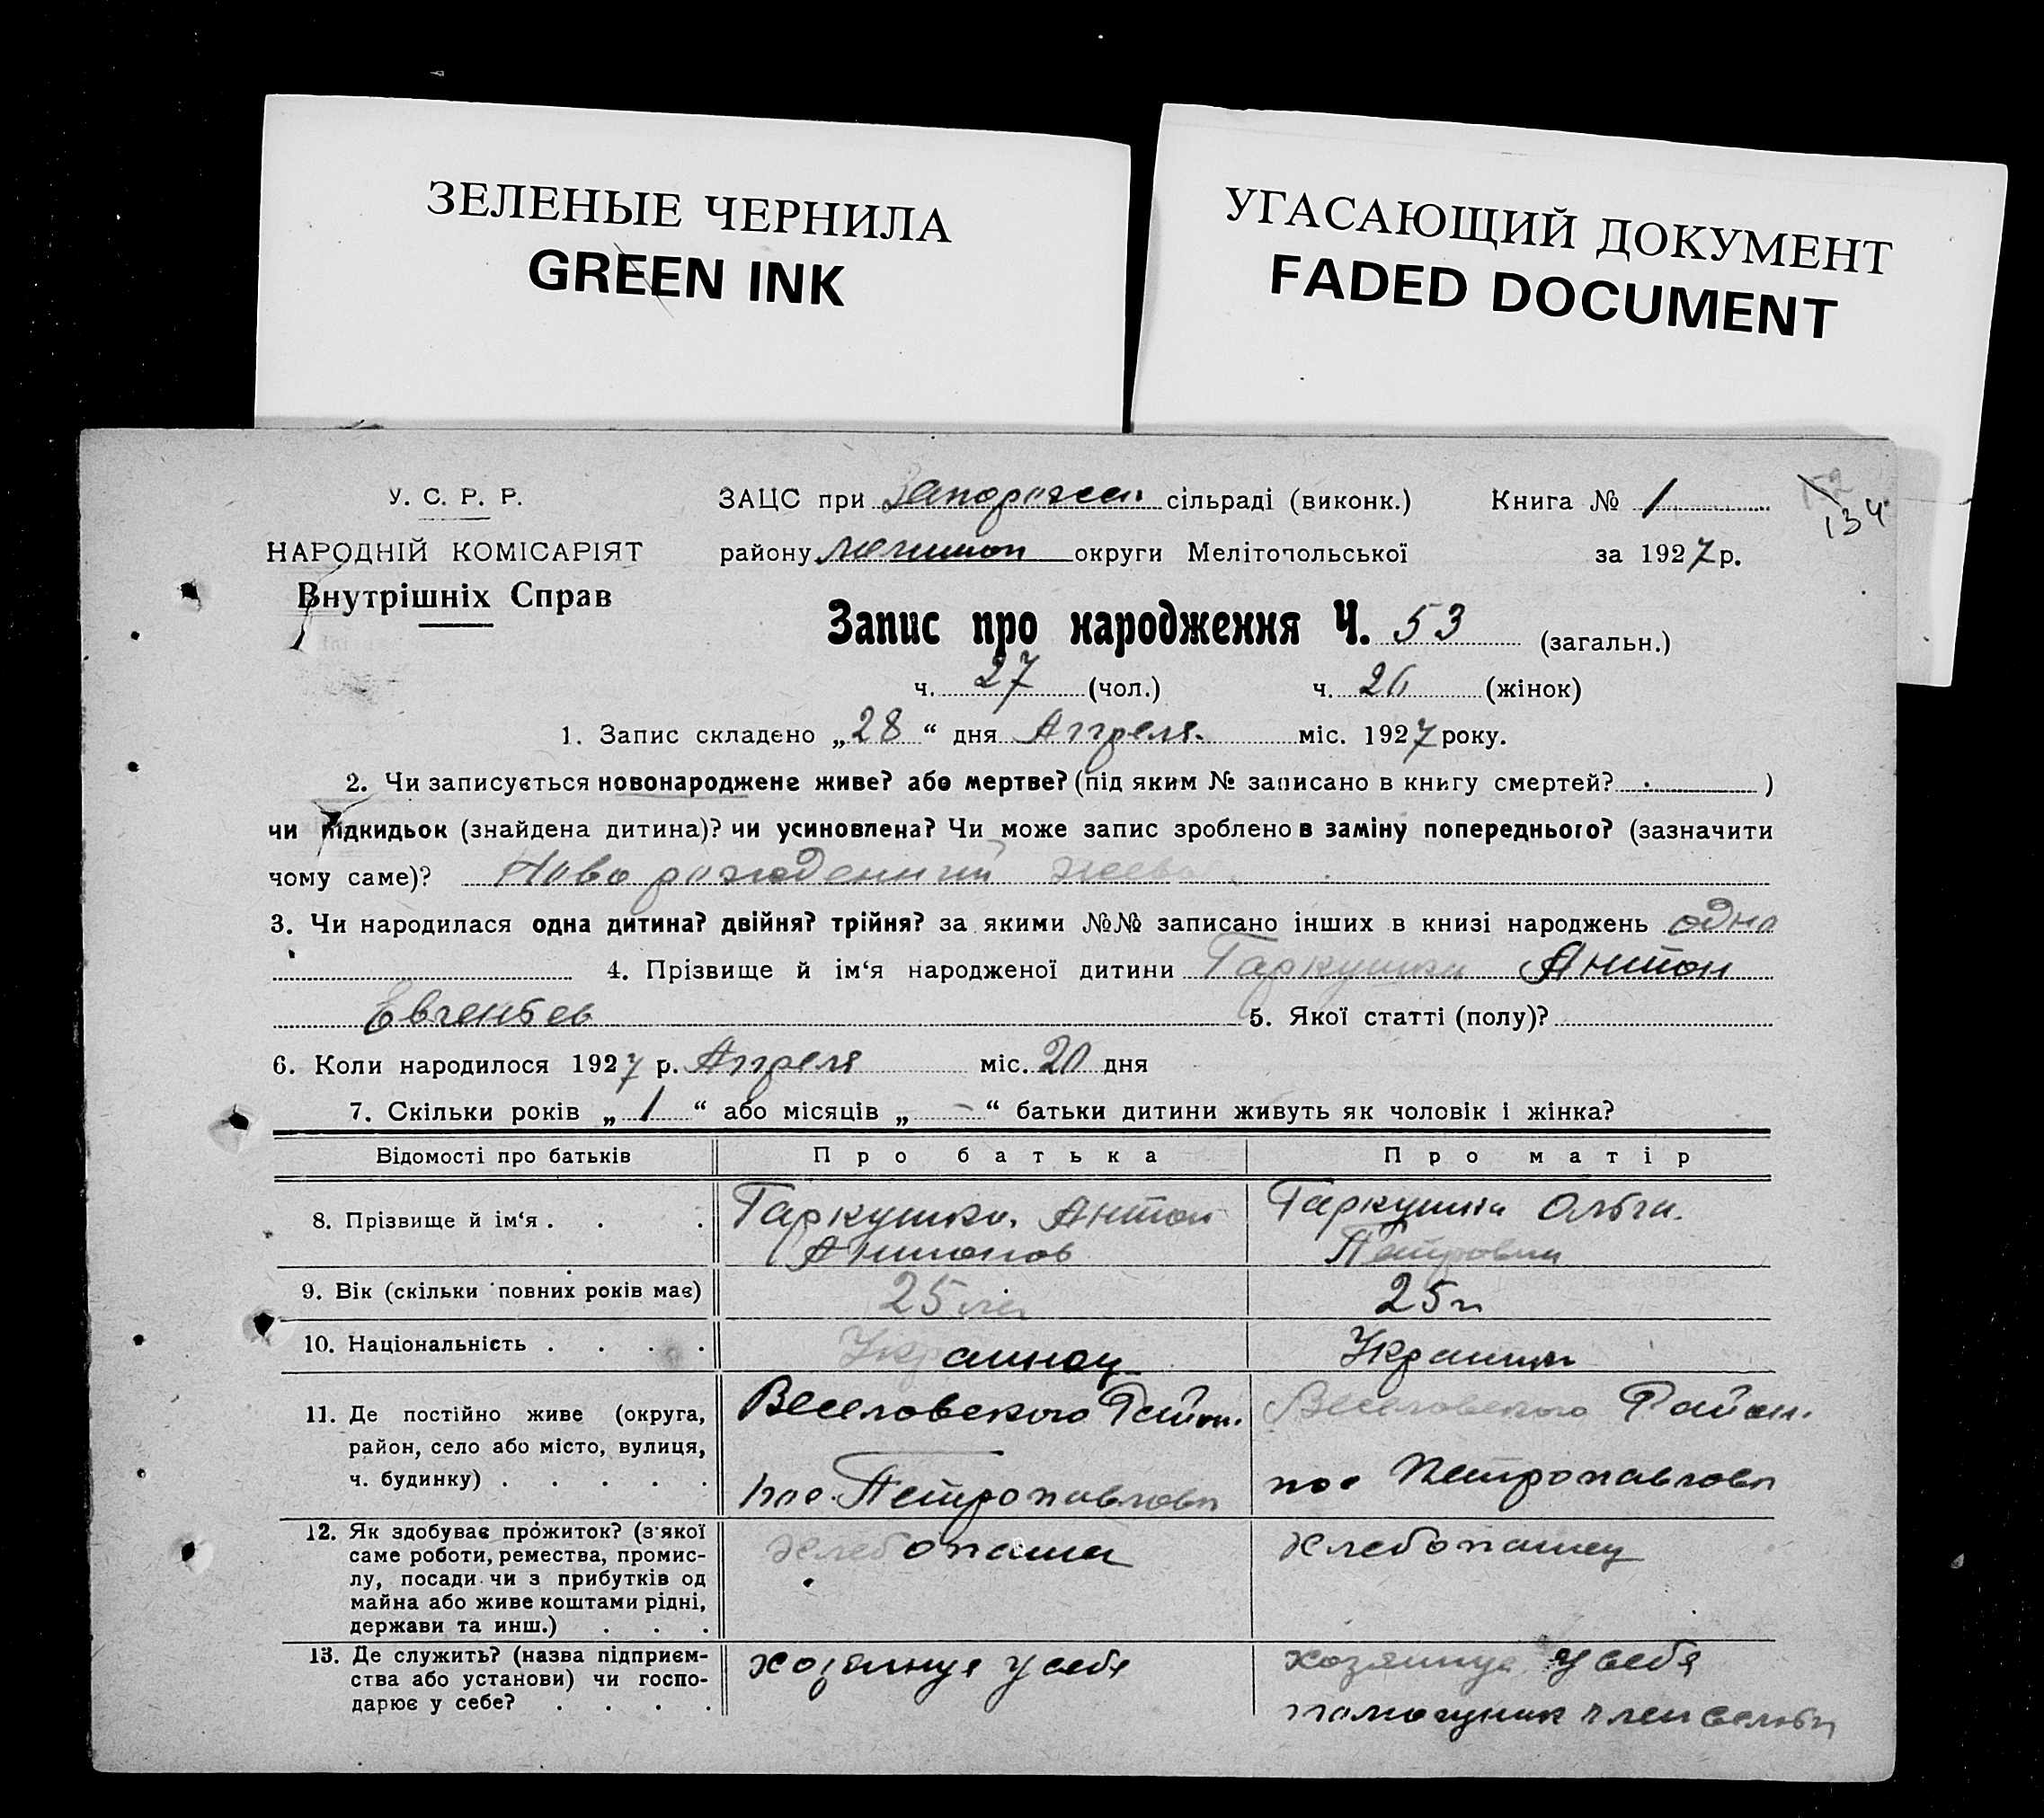 ЗЕЛЕНЫЕ ЧЕРНИЛА
GREEN INK
УГАСАЮЩИЙ ДОКУМЕНТ
FADED DOCUMENT
134
У. С. Р. Р.
НАРОДНІЙ КОМІСАРІЯТ
Внутрішніх Справ
ЗАЦС при сільраді (виконк.) Книга № 1
району округи Мелітопольської за 1927 р.
Запис про народження Ч. 53 (загальн.)
ч. 27 (чол.) ч. 26 (жінок)
1. Запис складено „28“ дня Апреля міс. 1927 року.
2. Чи записується новонароджене живе? або мертве? (під яким № записано в книгу смертей? )
чи підкидьок (знайдена дитина)? чи усиновлена? Чи може запис зроблено в заміну попереднього? (зазначити
чому саме)? Новорожденный
3. Чи народилася одна дитина? двійня? трійня? за якими №№ записано інших в книзі народжень одна
4. Прізвище й ім‘я народженої дитини Гаркушка Антон
5. Якої статті (полу)?
6. Коли народилося 1927 р. Апреля міс. 20 дня
7. Скільки років „1“ або місяців „-“ батьки дитини живуть як чоловік і жінка?
Відомості про батьків Про батька Про матір
8. Прізвище й ім‘я . . . Гаркушка Антон Гаркушка Ольга
Антонов Петровна
9. Вік (скільки повних років має) 25 25
10. Національність . . . . Украинец Украинка
11. Де постійно живе (округа,
район, село або місто, вулиця,
ч. будинку) . . . . .
Веселовского Район.
пос. Петропавловка
Веселовского Район.
пос Петропавловка
12. Як здобуває прожиток? (з якої
саме роботи, ремества, промис-
лу, посади чи з прибутків од
майна або живе коштами рідні,
держави та инш.) . . .
хлебопашец
хлебопашец
13. Де служить? (назва підприєм-
ства або установи) чи госпо-
дарює у себе? . . . .
у себя
у себя